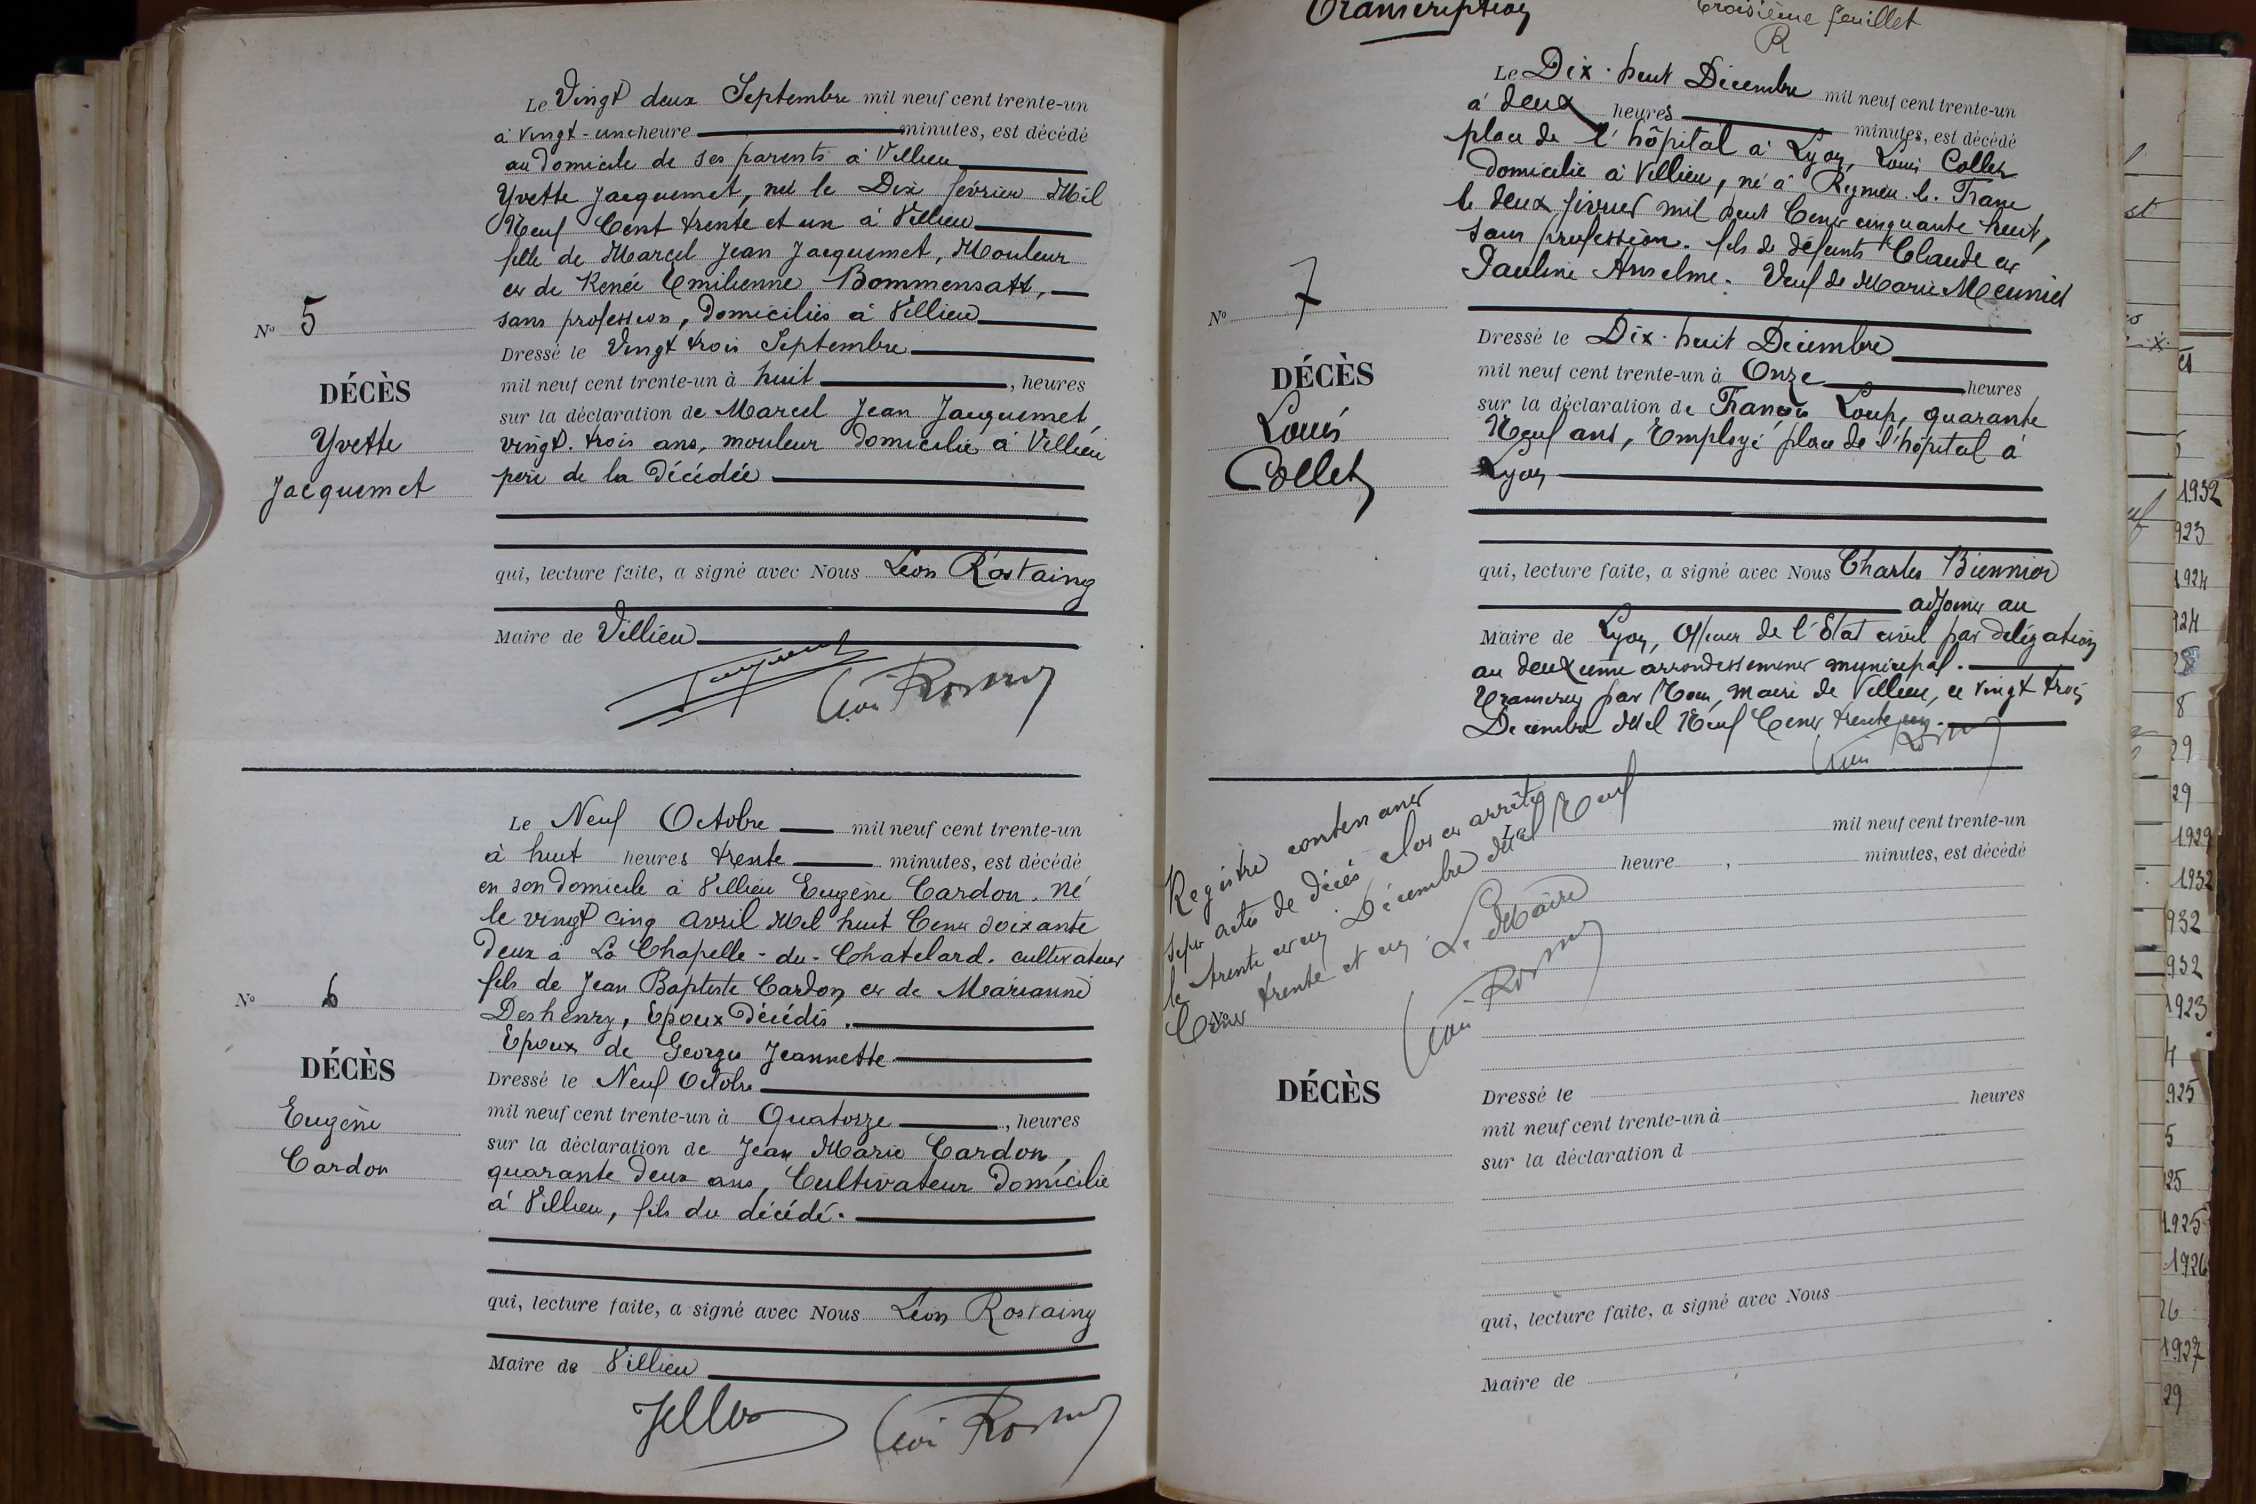 Le Vingt deux Septembre mil neuf cent trente-un
à vingt-une heure minutes, est décédé
au domicile de ses parents à Villieu
Yvette Jacquemet, née le Dix février Mil
Neuf Cent trente et un à Villieu
fille de Marcel Jean Jacquemet, Mouleur
et de Renée Emilienne Bommensatt,
sans profession, Domiciliés à Villieu
N° 5
Dressé le Vingt trois Septembre
mil neuf cent trente-un à huit , heures
DÉCÈS
Yvette
Jacquemet
sur la déclaration de Marcel Jean Jacquemet,
vingt-trois ans, mouleur domicilié à Villieu
père de la Décédée
qui, lecture faite, a signé avec Nous Léon Rostaing
Maire de Villieu
Le Neuf Octobre mil neuf cent trente-un
à huit heures trente minutes, est décédé
en son domicile à Villieu Eugène Cardon. né
le vingt cinq avril Mil huit Cent soixante
deux à La Chapelle-du-Chatelard. cultivateur
fils de Jean Baptiste Cardon et de Marianne
N° 6
Deshenry, Epoux Décédés.
Epoux de Georges Jeannette
DÉCÈS
Eugène
Cardon
Dressé le Neuf Octobre
mil neuf cent trente-un à Quatorze , heures
sur la déclaration de Jean Marie Cardon,
quarante deux ans, Cultivateur Domicilié
à Villieu, fils du décédé.
qui, lecture faite, a signé avec Nous Léon Rostaing
Maire de Villieu
Transcription
Troisième feuillet
R
Le Dix-huit Décembre mil neuf cent trente-un
à deux heures minutes, est décédé
place de l'hôpital à Lyon, Louis Collet
domicilié à Villieu, né à Rigneu-le-Franc
le deux février mil huit Cent cinquante huit,
sans profession. fils de défunts Claude et
Pauline Anselme. Veuf de Marie Meunier
N° 7
DÉCÈS
Louis
Collet
Dressé le Dix-huit Décembre
mil neuf cent trente-un à Onze heures
sur la déclaration de François Loup, quarante
Neuf ans, Employé place de l'hôpital à
Lyon
qui, lecture faite, a signé avec Nous Charles Biennier
adjoint au
Maire de Lyon, Officier de l'Etat civil par délégation
au deuxième arrondissement municipal.
Transcrit par Nous, Maire de Villieu, ce vingt trois
Décembre Mil Neuf Cent trente un.
Registre contenant
sept actes de décès clos et arrêté
le trente et un Décembre Mil Neuf
Cent trente et un. Le Maire
Le mil neuf cent trente-un
heure , minutes, est décédé
N°
DÉCÈS
Dressé le
mil neuf cent trente-un à heures
sur la déclaration d
qui, lecture faite, a signé avec Nous
Maire de
1932
923
1924
924
8
29
29
1929
1932
932
932
1923
4
925
5
25
1925
1926
26
1927
29